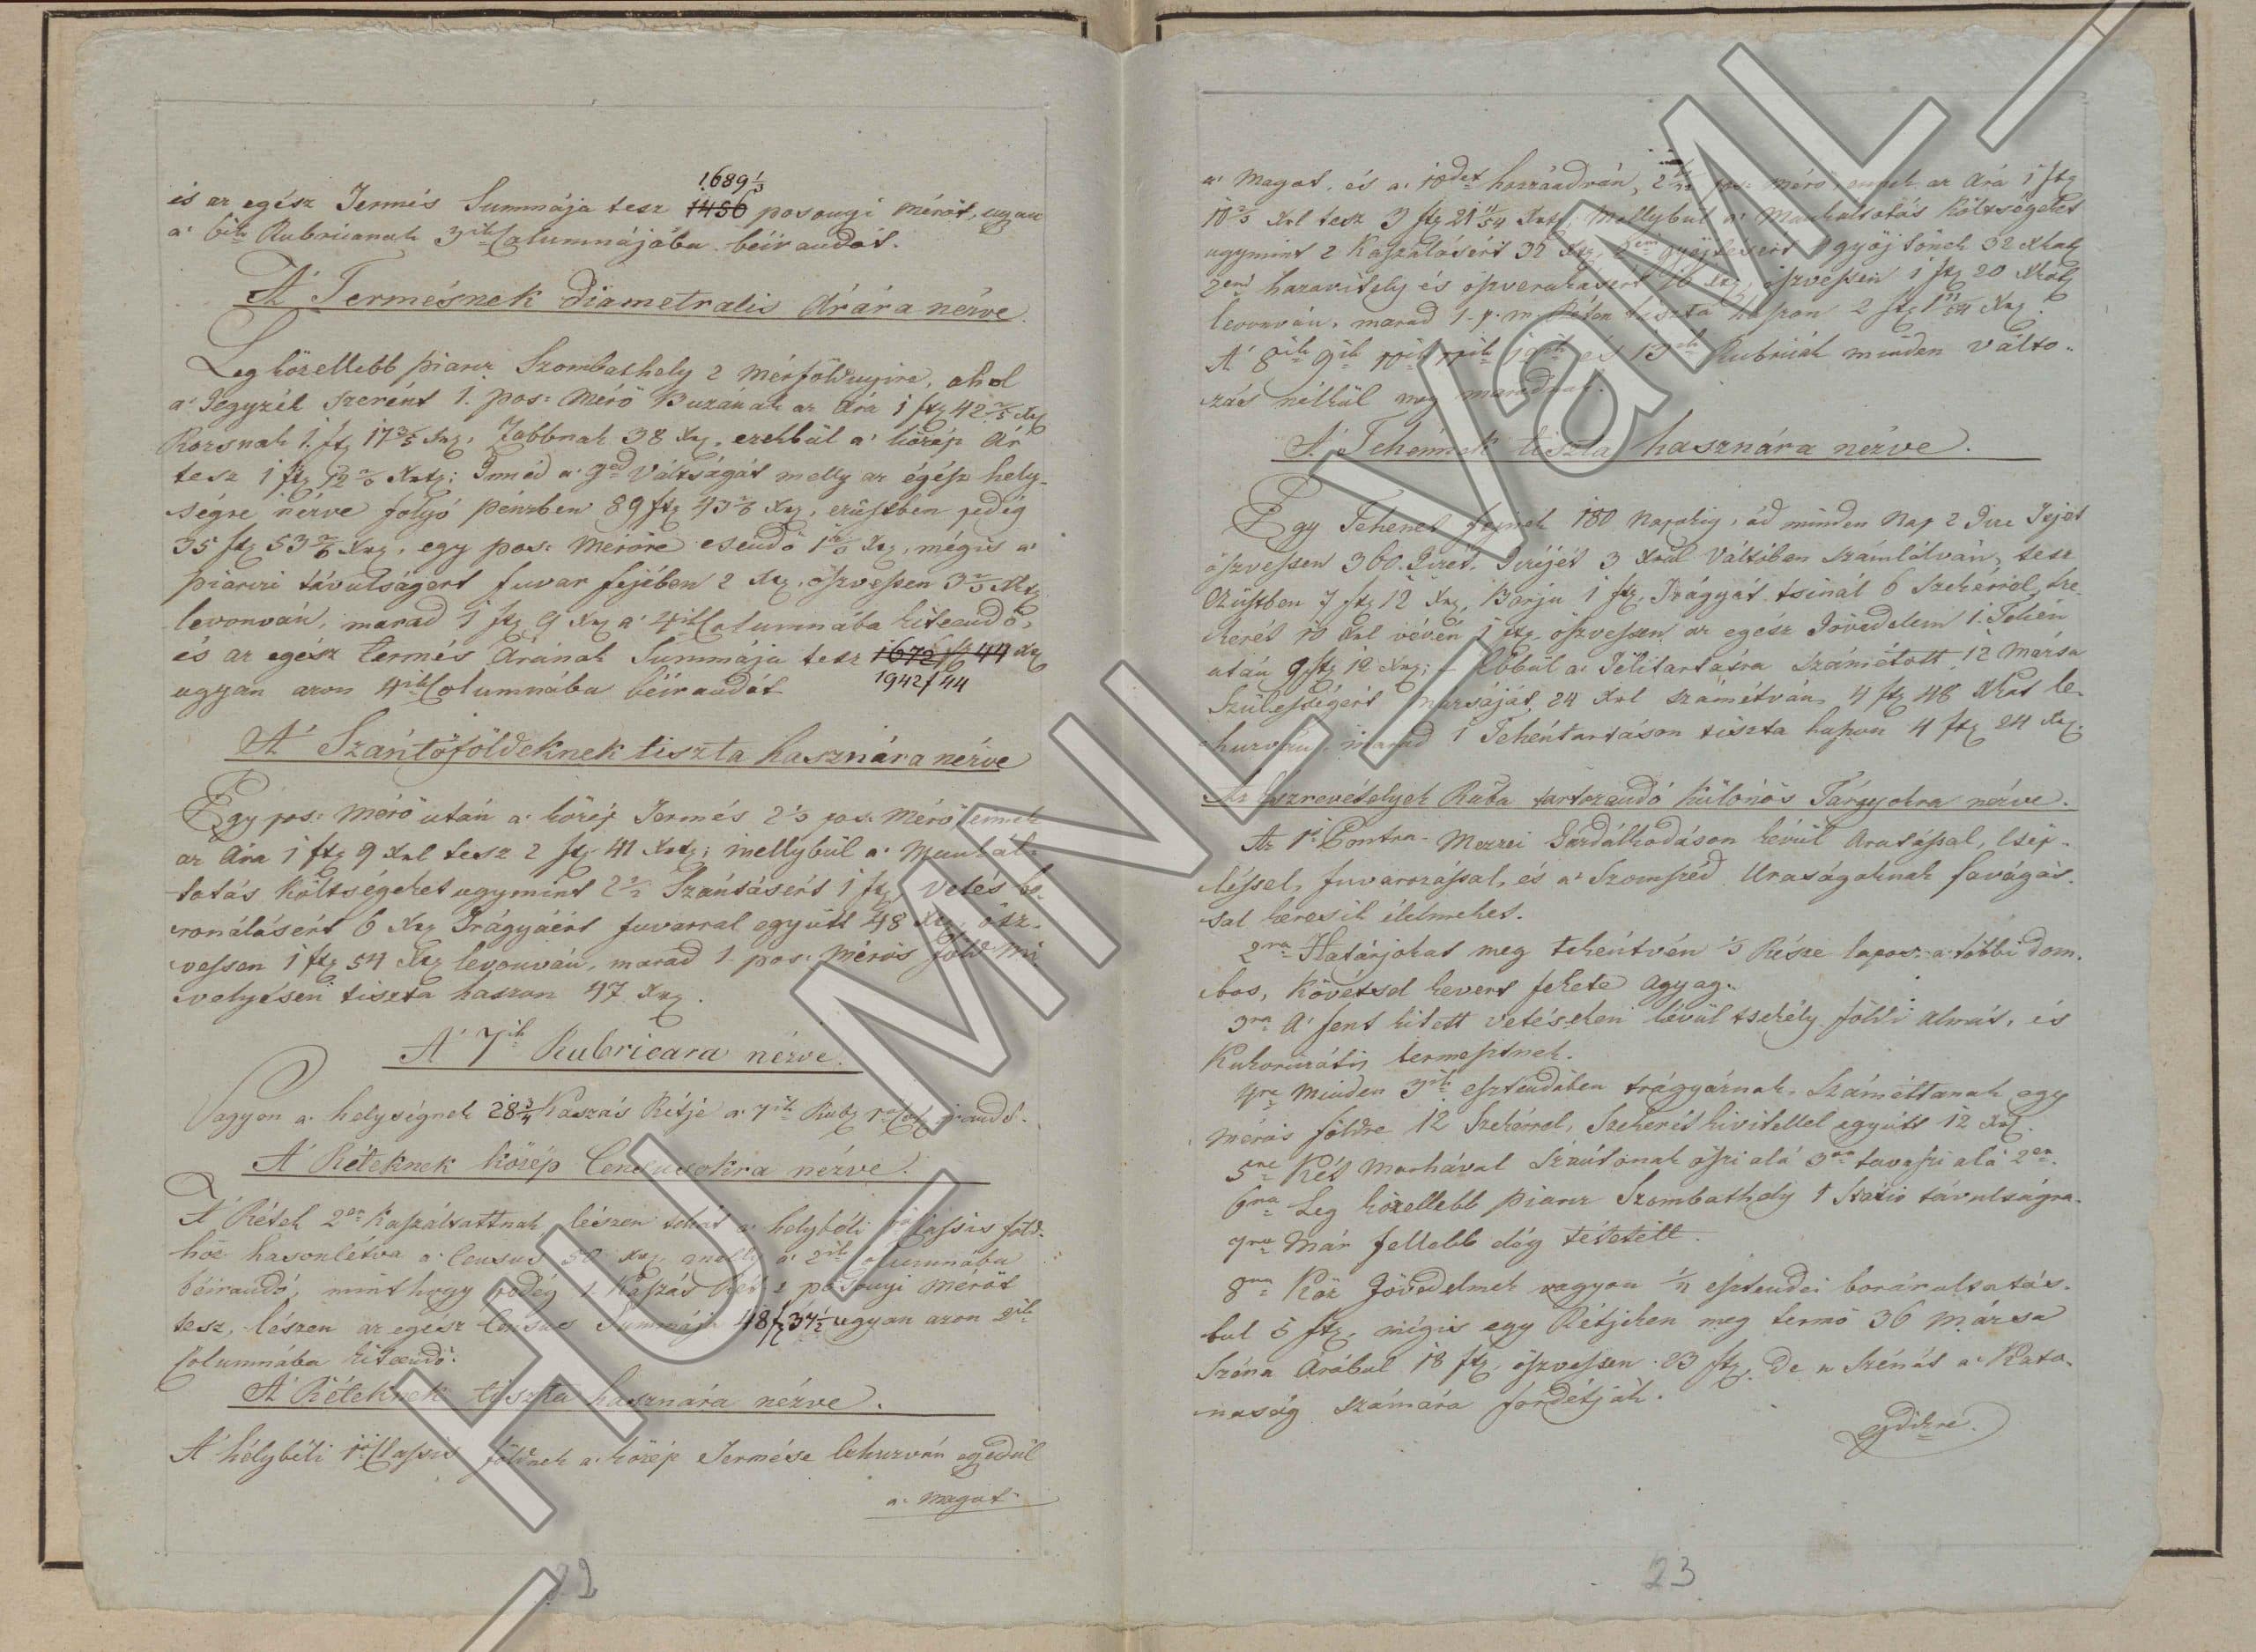 1689 1/3
és az egész Termés Summája tesz 1456 posonyi mérőt, ugyan
a' 6ik Rubricanak 3ik Columnájába béirandót.
A' Termésnek diametralis Árára nézve
Leg közellebb piarz Szombathely 2 mérföldnyire, ahol
a' Jegyzék szerént 1. pos: mérő Buzanak az Ára 1 ftz 42 2/5 Xrz
Rozsnak 1. ftz 17 3/5 Xrz, Zabbnak 38 Xrz, ezekbül a' közép Ár
tesz 1 ftz 12 Xrtz; Innéd a' 9ed Váltságát melly az égész hely-
ségre nézve folyó pénzben 89 ftz 43 Xrz, ezüstben pedig
35 ftz 53 Xrz, egy pos: Mérőre esendő 1 Xrz, mégis a'
piarzi távulságert fuvar fejében 2 Xrz, öszvessen 3 Xrtz
levonván, marad 1 ftz 9 Xrz a' 4ik Columnába kiteendő,
és az egész termés Árának Summája tesz 1672 ftz 44 Xrz
ugyan azon 4ik Columnába béirandót 1942 f 44
A' Szántóföldeknek tiszta hasznára nézve
Egy pos: mérő után a' közép Termés 2 1/3 pos: Mérő ennek
az Ára 1 ftz 9 Xrl tesz 2 ftz 41 Xrtz; mellybül a' Munkál-
tatás Költségeket ugymint 2 1/2 Szántásért 1 ftz, Vetés bo-
ronálásért 6 Xrz Trágyáért fuvarral együtt 48 Xrz, ösz-
vessen 1 ftz 54 Xrz levonván, marad 1. pos: Mérős föld mi
velyésén tiszta haszon 47 Xrz.
A' 7ik Rubricara nézve.
Vagyon a' helységnek 28 3/4 Kaszás Rétje a' 7ik Rubr irandó.
A' Réteknek közép Censusokra nézve.
A' Rétek 2er Kaszáltattnak, lészen tehát a' helybéli Classis föld-
höz hasonlétva a' Census 50 Xrz melly a' 2ik Columnába
béirandó, mint hogy pedég 1. Kaszás Rét 2 posonyi mérőt
tesz, lészen az egész Census Summája 48 f 37 1/2 ugyan azon 2ik
Columnába kiteendő.
A' Réteknek tiszta hasznára nézve.
A' hélybéli 1ő Classis földnek a' közép Termése lehuzván egyedül
a' magot
22
a' Magot, és a' 10det hozzáadván, 2 pos: mérő, ennek az Ára 1 ftz
10 2/5 Xrl tesz 3 ftz 21 11/54 Xrtz, Mellybül a' Munkaltatás Költségeket
ugymint 2 Kaszálásért 32 Xrz, gyöjtésért 4 gyöjtőnek 32 Xkat
haravitely és öszverakásért 16 Xrz, öszvessen 1 ftz 20 Xkat
levonván, marad 1. p. m. Réten tiszta haszon 2 ftz 1 11/54 Xrz.
A' 8ik 9ik 10ik 11ik 12ik és 13ik Rubricák minden válto-
zás nélkül meg maradnak.
A' Tehénnek tiszta hasznára nézve.
Egy Tehenet fejnek 180 Napokig, ád minden Nap 2 Itze Tejet
öszvessen 360. Itzét, Itzéjét 3 Xrúl Váltóben számlálván, tesz
Ezüstben 7 ftz 12 Xrz, Borju 1 ftz, Trágyát tsinál 6 Szekérrel, Sze-
kerét 10 Xrl vévén 1 ftz, öszvessen az egész Jövedelem 1. Tehén
után 9 ftz 12 Xrz; Ebbül a' Télitartásra számétott 12 Mársa
Szülességért Mársáját 24 Xrl számétván, 4 ftz 48 Xkat le-
huzván, marad 1 Tehéntartáson tiszta haszon 4 ftz 24 Xrz.
Az Eszrevételyek Rubr tartozandó különös Tárgyokra nézve.
Az 1ő Contra - Mezzei Gazdálkodáson kévül Aratással, Csép-
léssel, fuvarozással, és a' Szomszéd Uraságaknak favágás-
sal keresik élelmeket.
2ra Határjokat meg tekéntvén 1/3 Része lapos a' többi dom-
bos, Kövétsel kevert fekete agyag.
3ra A' fent kitett vetéseken kévül tsekély földi almát, és
Kukoriczátis termesztnek.
4re Minden 3ik esztendőben trágyáznak, Száméttanak egy
mérős földre 12 Szekérrel, Szekerét kivitellel együtt 12 Xrz.
5re Két Marhával Szántanak öszi alá 3or tavaszi alá 2er.
6ra Leg közellebb piarz Szombathely 1 Statio távulságra.
7re Már fellebb elég tétetett.
8ra Köz Jövedelmek vagyon 1/2 esztendei borárultatás-
bul 5 ftz, mégis egy Rétjeken meg termő 36 Mársa
Széna Árábul 18 ftz, öszvessen 23 ftz, De a' Szénát a' Kato-
naság számára fordétják.
23